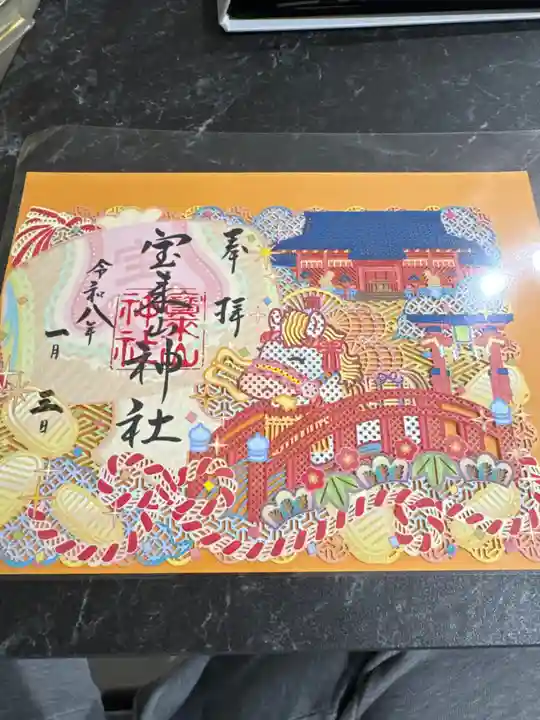 奉拝
宝来山神社
令和八年
一月
三日